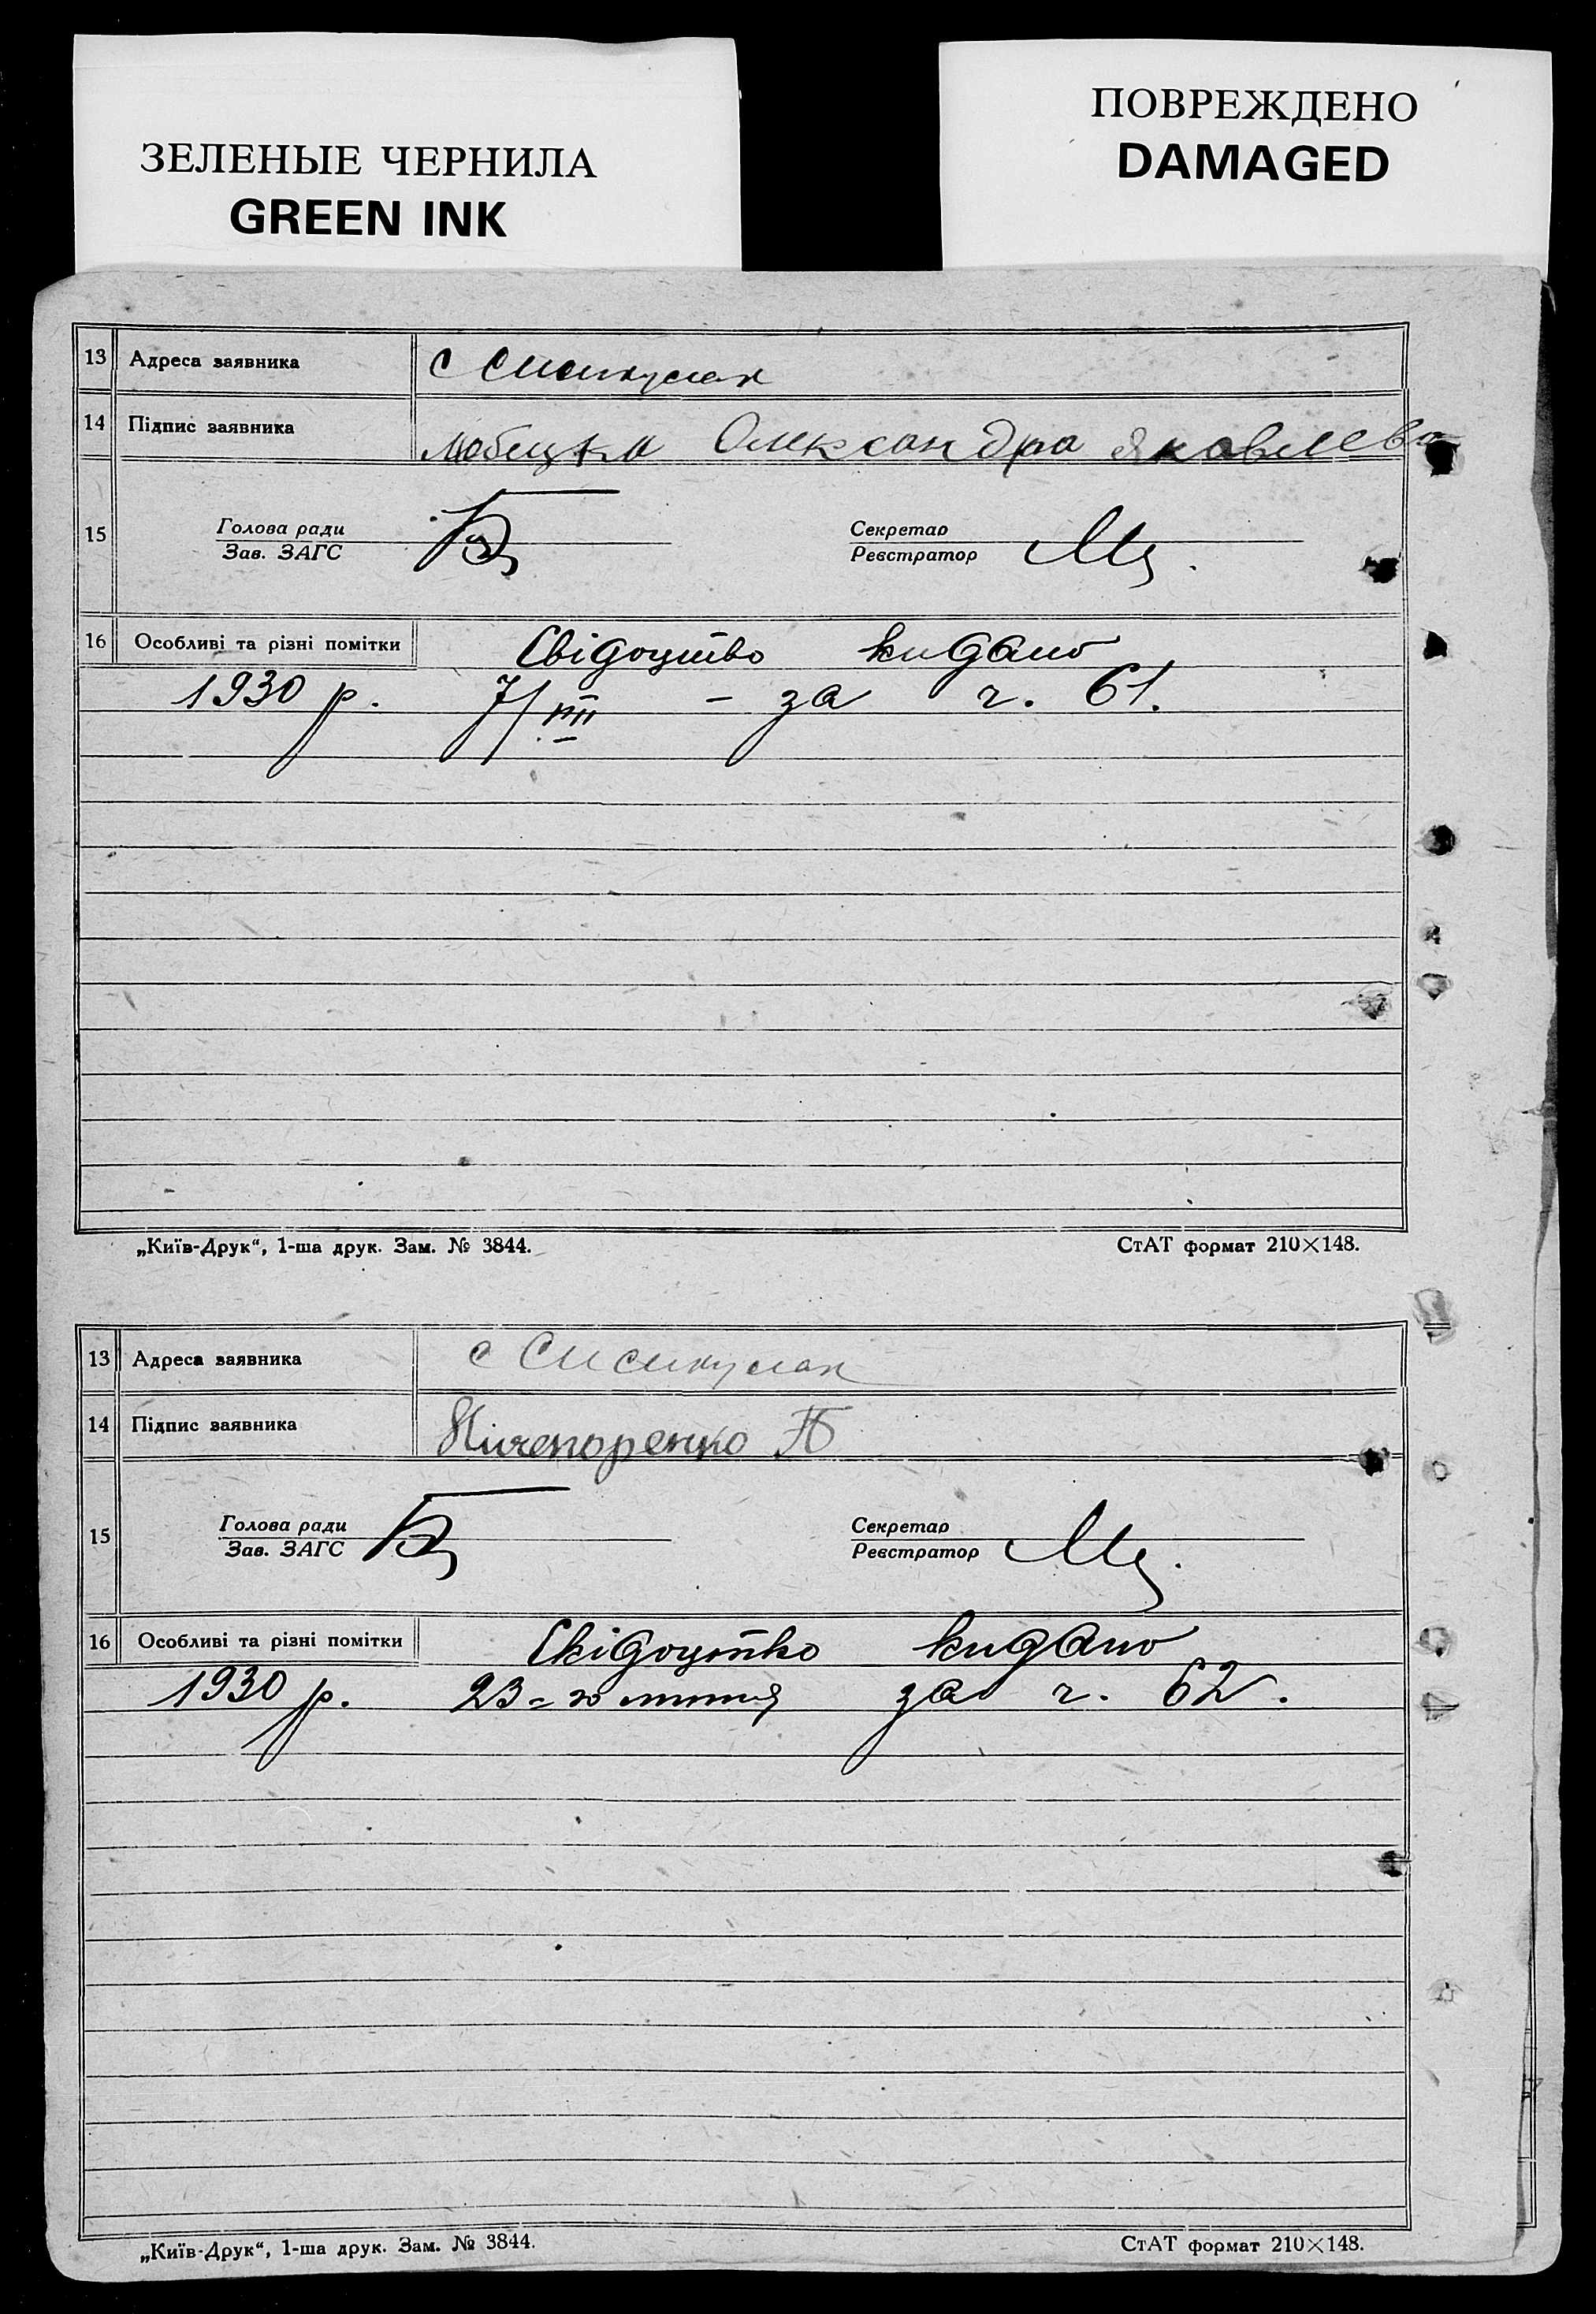 ЗЕЛЕНЫЕ ЧЕРНИЛА
GREEN INK
ПОВРЕЖДЕНО
DAMAGED
13 Адреса заявника с
14 Підпис заявника Олександра Яковлева
15 Голова ради Секретар
Зав. ЗАГС Реєстратор
16 Особливі та різні помітки Свідоцтво видано
1930 р. 7/VIII – за ч. 61.
„Київ-Друк“, 1-ша друк. Зам. № 3844. СтАТ формат 210×148.
13 Адреса заявника с
14 Підпис заявника Ничепоренко
15 Голова ради Секретар
Зав. ЗАГС Реєстратор
16 Особливі та різні помітки Свідоцтво видано
1930 р. 23 за ч. 62.
„Київ-Друк“, 1-ша друк. Зам. № 3844. СтАТ формат 210×148.